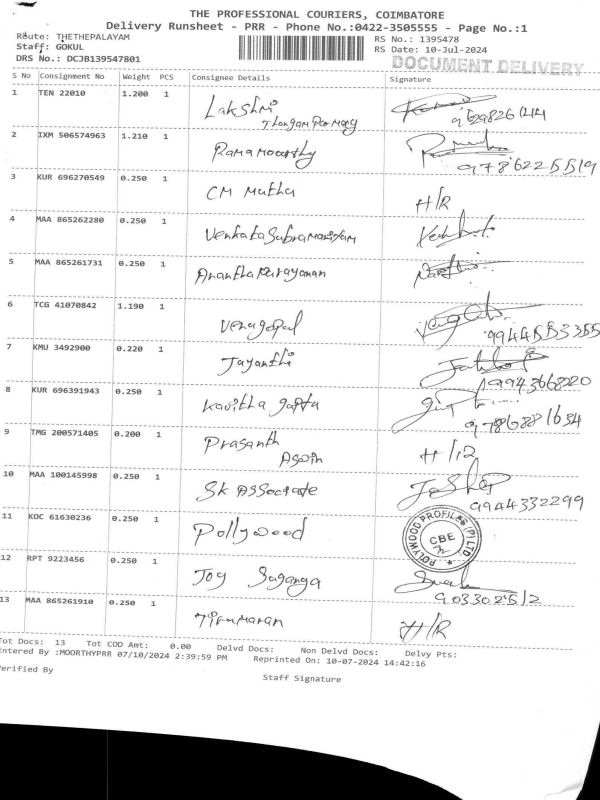 THE PROFESSIONAL COURIERS, COIMBATORE
Delivery Runsheet - PRR - Phone No.:0422-3505555 - Page No.:1
Route: THETHEPALAYAM
RS No.: 1395478
Staff: GOKUL
RS Date: 10-Jul-2024
DRS No.: DCJB139547801
DOCUMENT DELIVERY
S No Consignment No Weight PCS Consignee Details Signature
1 TEN 22010 1.200 1 Lakshmi
2 IXM 506574963 1.210 1 Ramamoorthy
9786225519
3 KUR 696270549 0.250 1 CM Muthu H/R
4 MAA 865262280 0.250 1
5 MAA 865261731 0.250 1
6 TCG 41070842 1.190 1 Venugopal
9944553355
7 KMU 3492900 0.220 1 Jayanthi
9994366820
8 KUR 696391943 0.250 1 Kavitha gupta
9786881634
9 TMG 200571405 0.200 1 Prasanth
Aswin
10 MAA 100145998 0.250 1 SK Associate
9944332299
11 KOC 61630236 0.250 1 Pollywood
POLYWOOD PROFILES (P) LTD
CBE
12 RPT 9223456 0.250 1 Joy
13 MAA 865261910 0.250 1 Tirumaran H/R
Tot Docs: 13 Tot COD Amt: 0.00 Delvd Docs: Non Delvd Docs: Delvy Pts:
Entered By :MOORTHYPRR 07/10/2024 2:39:59 PM Reprinted On: 10-07-2024 14:42:16
Verified By
Staff Signature